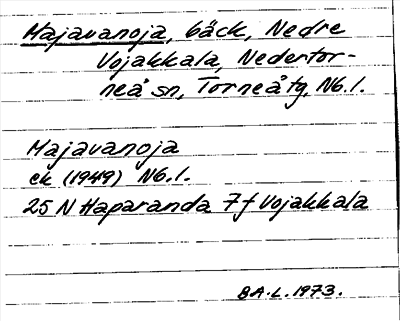 Majavanoja, bäck, Nedre
Vojakkala, Nedertor-
neå sn, Torneå tg, Nb.l.
Majavanoja
ek (1949) Nb.l.
25 N Haparanda 7f Vojakkala
BA.L. 1973.